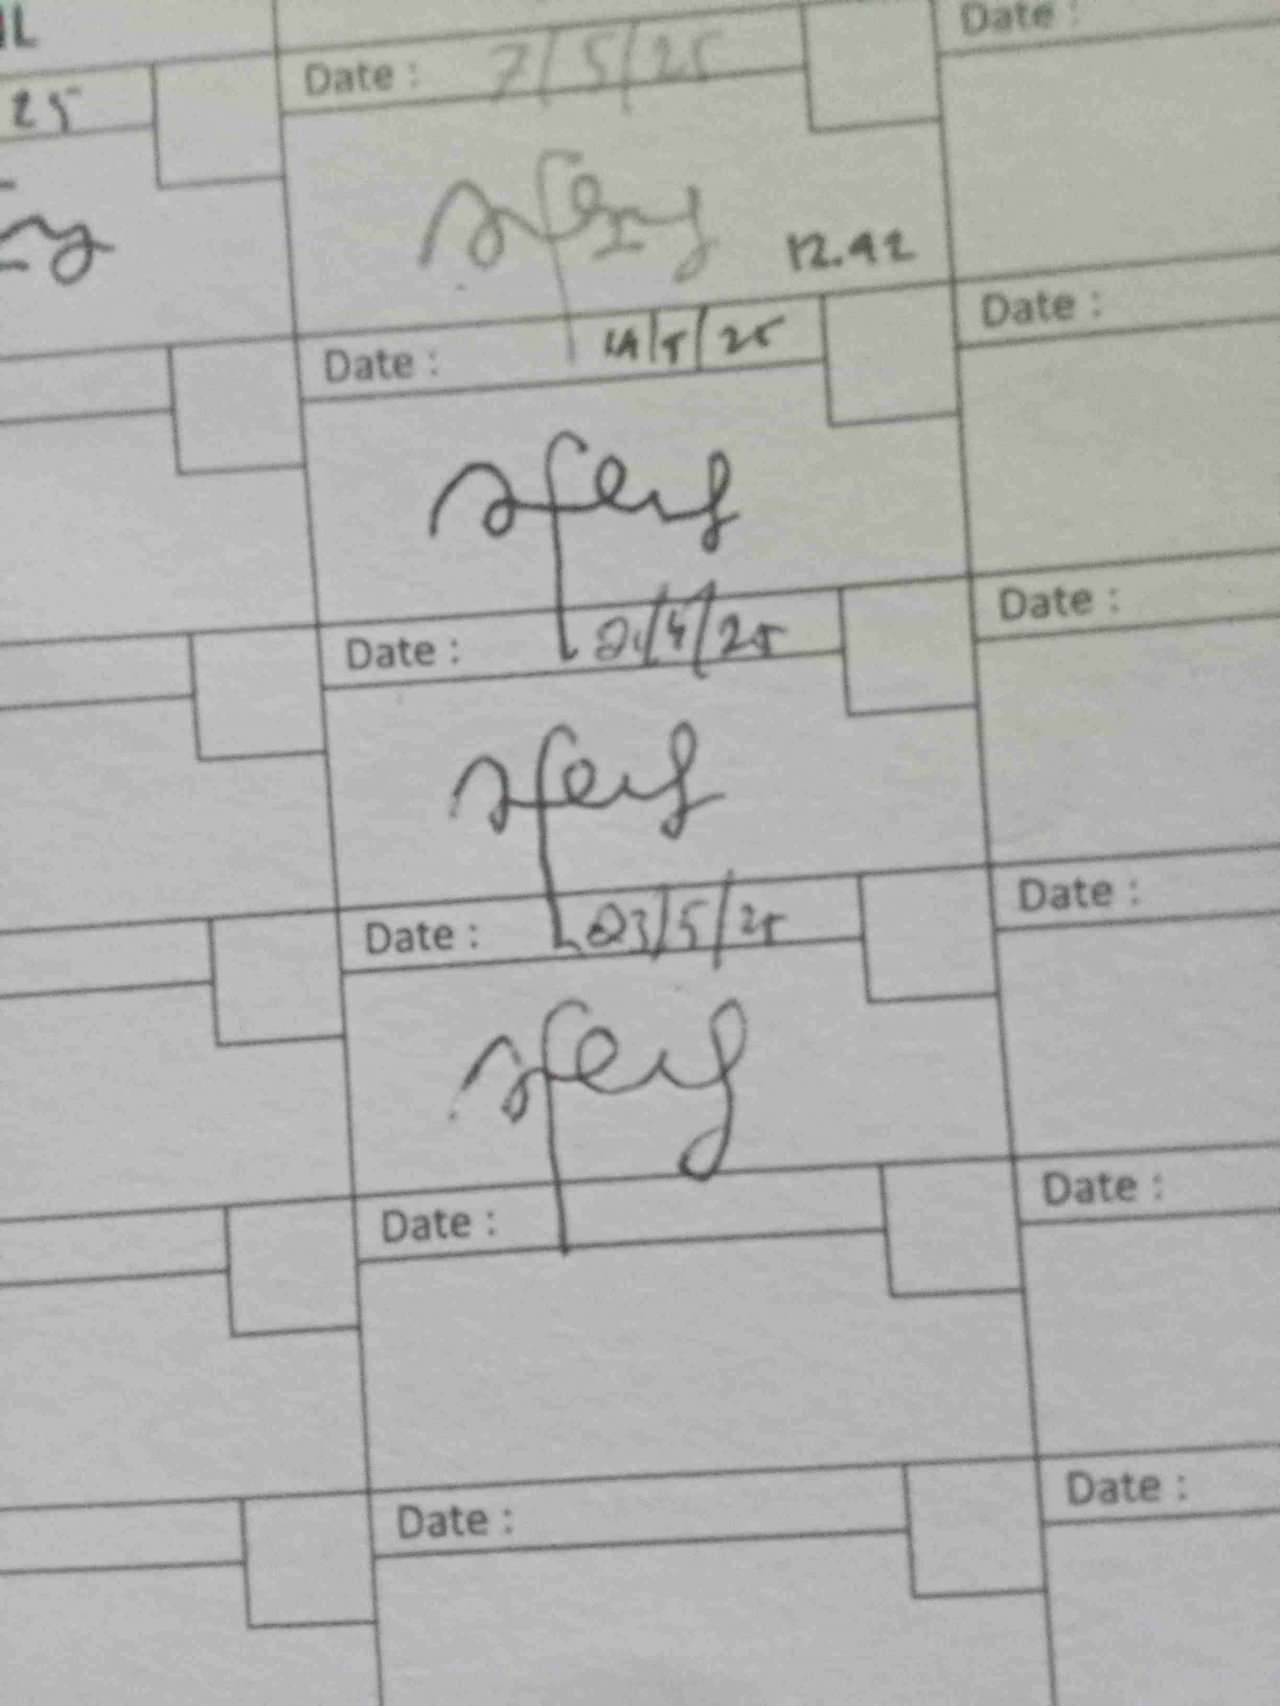 IL
Date :
Date : 7/5/25
25
12.42
Date :
Date : 14/5/25
Date :
Date : 21/5/25
Date :
Date : 23/5/25
Date :
Date :
Date :
Date :